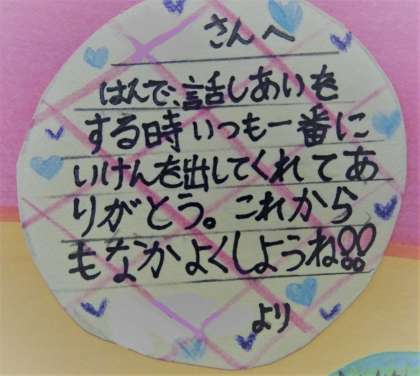 さんへ
はんで、話しあいを
する時いつも一番に
いけんを出してくれてあ
りがとう。これから
もなかよくしようね!!
より